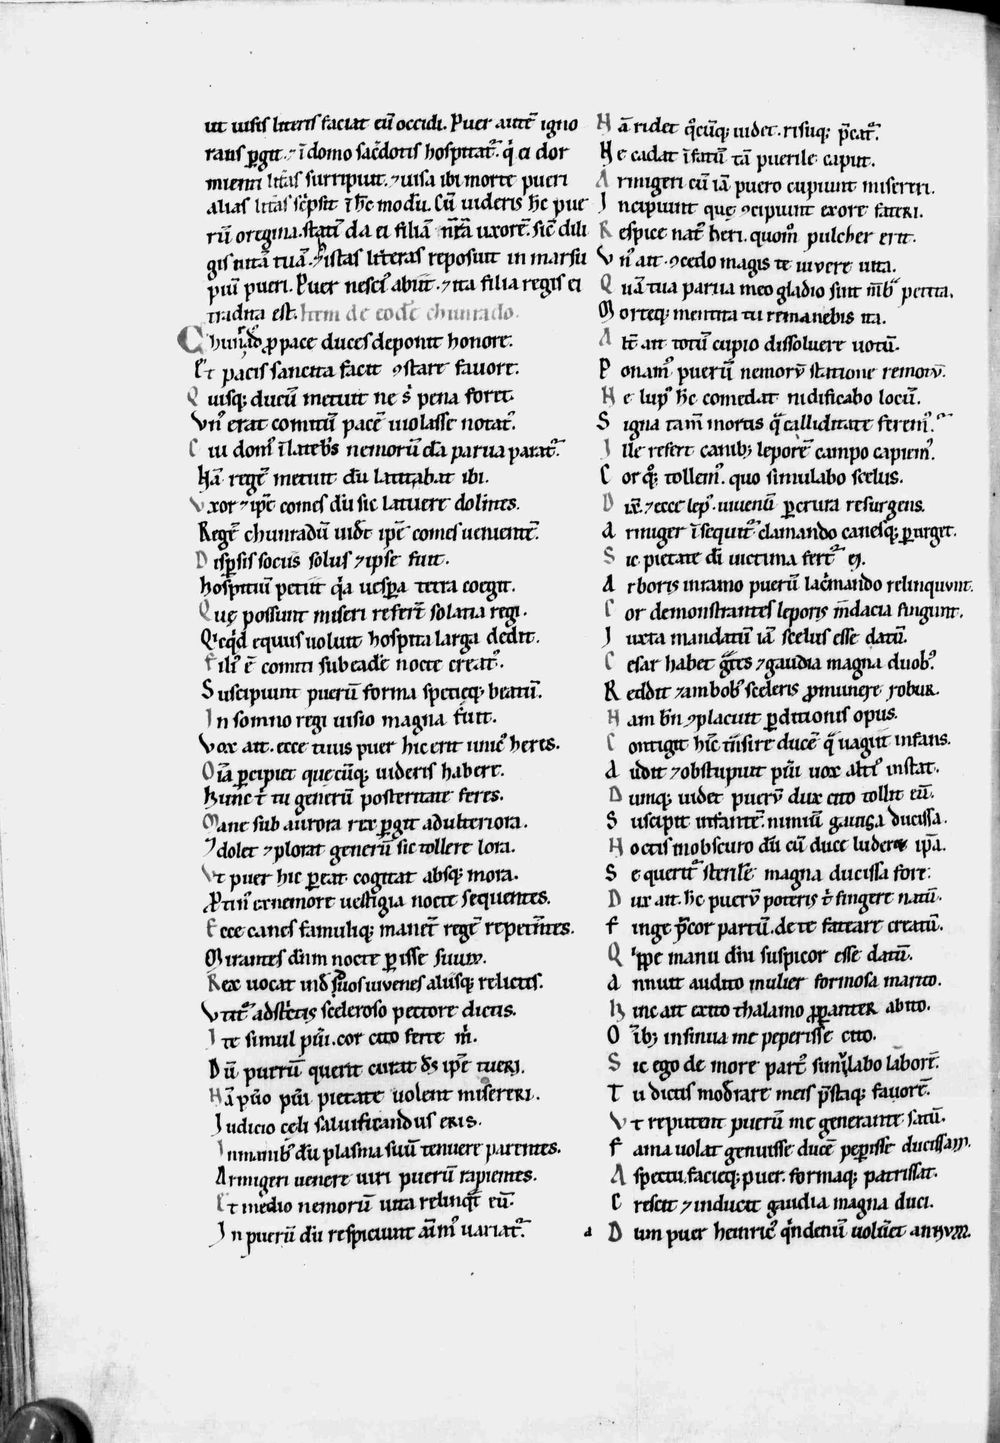 ut uisis litteris faciat eū occidi. Puer autē igno
rans ꝑgit. ⁊ ī domo sac̄dotis hospitat᷒. q̄ ei dor
mienti litt̄as surripuit. ⁊ uisa ibi morte pueri
alias litt̄as sc̄psit ī hc̄ modū. Cū uideris hc̄ pue
rū o regina. statī da ei filiā nr̄ā uxorē. sic̄ dili
gis uitā tuā. ⁊ istas litteras reposuit in marsu
piū pueri. Puer nesci᷒ abiit. ⁊ ita filia regis ei
tradita est. Item de eodē chunrado.
Chunrad᷒ ꝓ pace duces deponit honore.
Et pacis sancita facit ꝯstare fauore.
Quisq; ducū metuit ne s; pena foret.
Vn᷒ erat comitū pacē uiolasse notat᷒.
Cui dom᷒ ī lateb̄s nemorū dā parua parat᷒.
Nā regē metuit dū latitabat ibi.
Vxor ⁊ ip̄e comes dū sic latuere dolentes.
Regē chunradū uidt̄ ip̄e comes uenientē.
Disp̄sis sociis solus ⁊ ipse fuit.
Hospitiū petiit q̄a uesꝑa tetra coegit.
Quę possunt miseri refert̄ solatia regi.
Qͥcq̄d equus uoluit hospita larga dedit.
Fili᷒ ē comiti sub eadē nocte creat᷒.
Suscipiunt puerū forma specieq; beatū.
In somno regi uisio magna fuit.
Vox ait. ecce tuus puer hic erit unic᷒ heres.
Oīa ꝑcipiet quęcūq; uideris habere.
Hunc t̄ tu generū posteritate feres.
Mane sub aurora rex ꝑgit ad ulteriora.
⁊ dolet ⁊ plorat generū sic tollere lora.
Vt puer hic ꝑeat cogitat absq; mora.
Ꝓtin᷒ ex nemore uestigia nocte sequentes.
Ecce canes famuliq; manē regē repeīntes.
Mirantes dn̄m nocte ꝑisse suum.
Rex uocat inde suos iuuenes aliisq; relictis.
Vtit᷒ adst̄ctis sceleroso pectore dictis.
Ite simul pūi. cor cito ferte m̄.
Dū puerū querit curat ds̄ ip̄e tueri.
Nā pūo pūi pietate uolent misereri.
Iudicio celi saluificandus eris.
In manib᷒ dū plasma suū tenuere parentes.
Armigeri uenere uiri puerū rapientes.
Et medio nemorū uita relinq̄t eū.
In puerū dū respiciunt aīm᷒ uariat᷒.
Nā ridet q̄cūq; uidet. risuq; p̄cat᷒.
Ne cadat ī fatū tā puerile caput.
Armigeri cū iā puero cupiunt misereri.
Incipiunt quę ꝯcipiunt ex ore fateri.
Respice nat᷒ heri. quom̄ pulcher erit.
Vn᷒ ait. ꝯcedo magis te uiuere uita.
Quā tua parua meo gladio sint mēb᷒ perita.
Morteq; mentita tu remanebis ita.
Alt̄ ait totū cupio dissoluere uotū.
Ponam᷒ puerū nemorū statione remorū.
Ne lup᷒ hc̄ comedat nidificabo locū.
Signa tam̄ mortis q̄ calliditate ferem᷒.
Ille refert canib; leporē campo capiem᷒.
Cor q̄; tollem᷒. quo simulabo scelus.
Dix̄. ⁊ ecce lep᷒. iuuenū ꝑ crura resurgens.
Armiger īsequit᷒. clamando canesq; ꝑurget.
Sic pietate dī uictima fert᷒ ei.
Arboris in ramo puerū lac̄mando relinquunt.
Cor demonstrantes leporis mdacia fingunt.
Iuxta mandatū iā scelus esse datū.
Cesar habet ḡtes ⁊ gaudia magna duob᷒.
Reddit ⁊ ambob᷒ sceleris ꝓ munere robur.
Nam bn̄ ꝯplacuit ꝑditionis opus.
Contigit hic̄ tn̄sire ducē q̄ uagiit infans.
Audit ⁊ obstupuit pūi uox alti᷒ instat.
Dumq; uidet puerū dux cito tollit eū.
Suscipit infantē nimiū gauisa ducissa.
Noctis in obscuro dū cū duce luderet ip̄a.
Se querit᷒ sterilē magna ducissa fore.
Dux ait. hc̄ puerū poteris t̄ fingere natū.
Finge p̄cor partū. de te fateare creatū.
Qͥppe manu dn̄i suspicor esse datū.
Annuit audito mulier formosa marito.
Hinc ait exito thalamo ꝓꝑanter abito.
Oīb; insinua me peperisse cito.
Sic ego de more part᷒ simulabo laborē.
Tu dictis moderare meis p̄staq; fauorē.
Vt reputent puerū me generante satū.
Fama uolat genuisse ducē peꝑisse ducissam.
Aspectu. facieq; puer. formaq; patrissat.
Crescit ⁊ inducit gaudia magna duci.
Dum puer heinric᷒ q̄ndenū uoluēt annum.